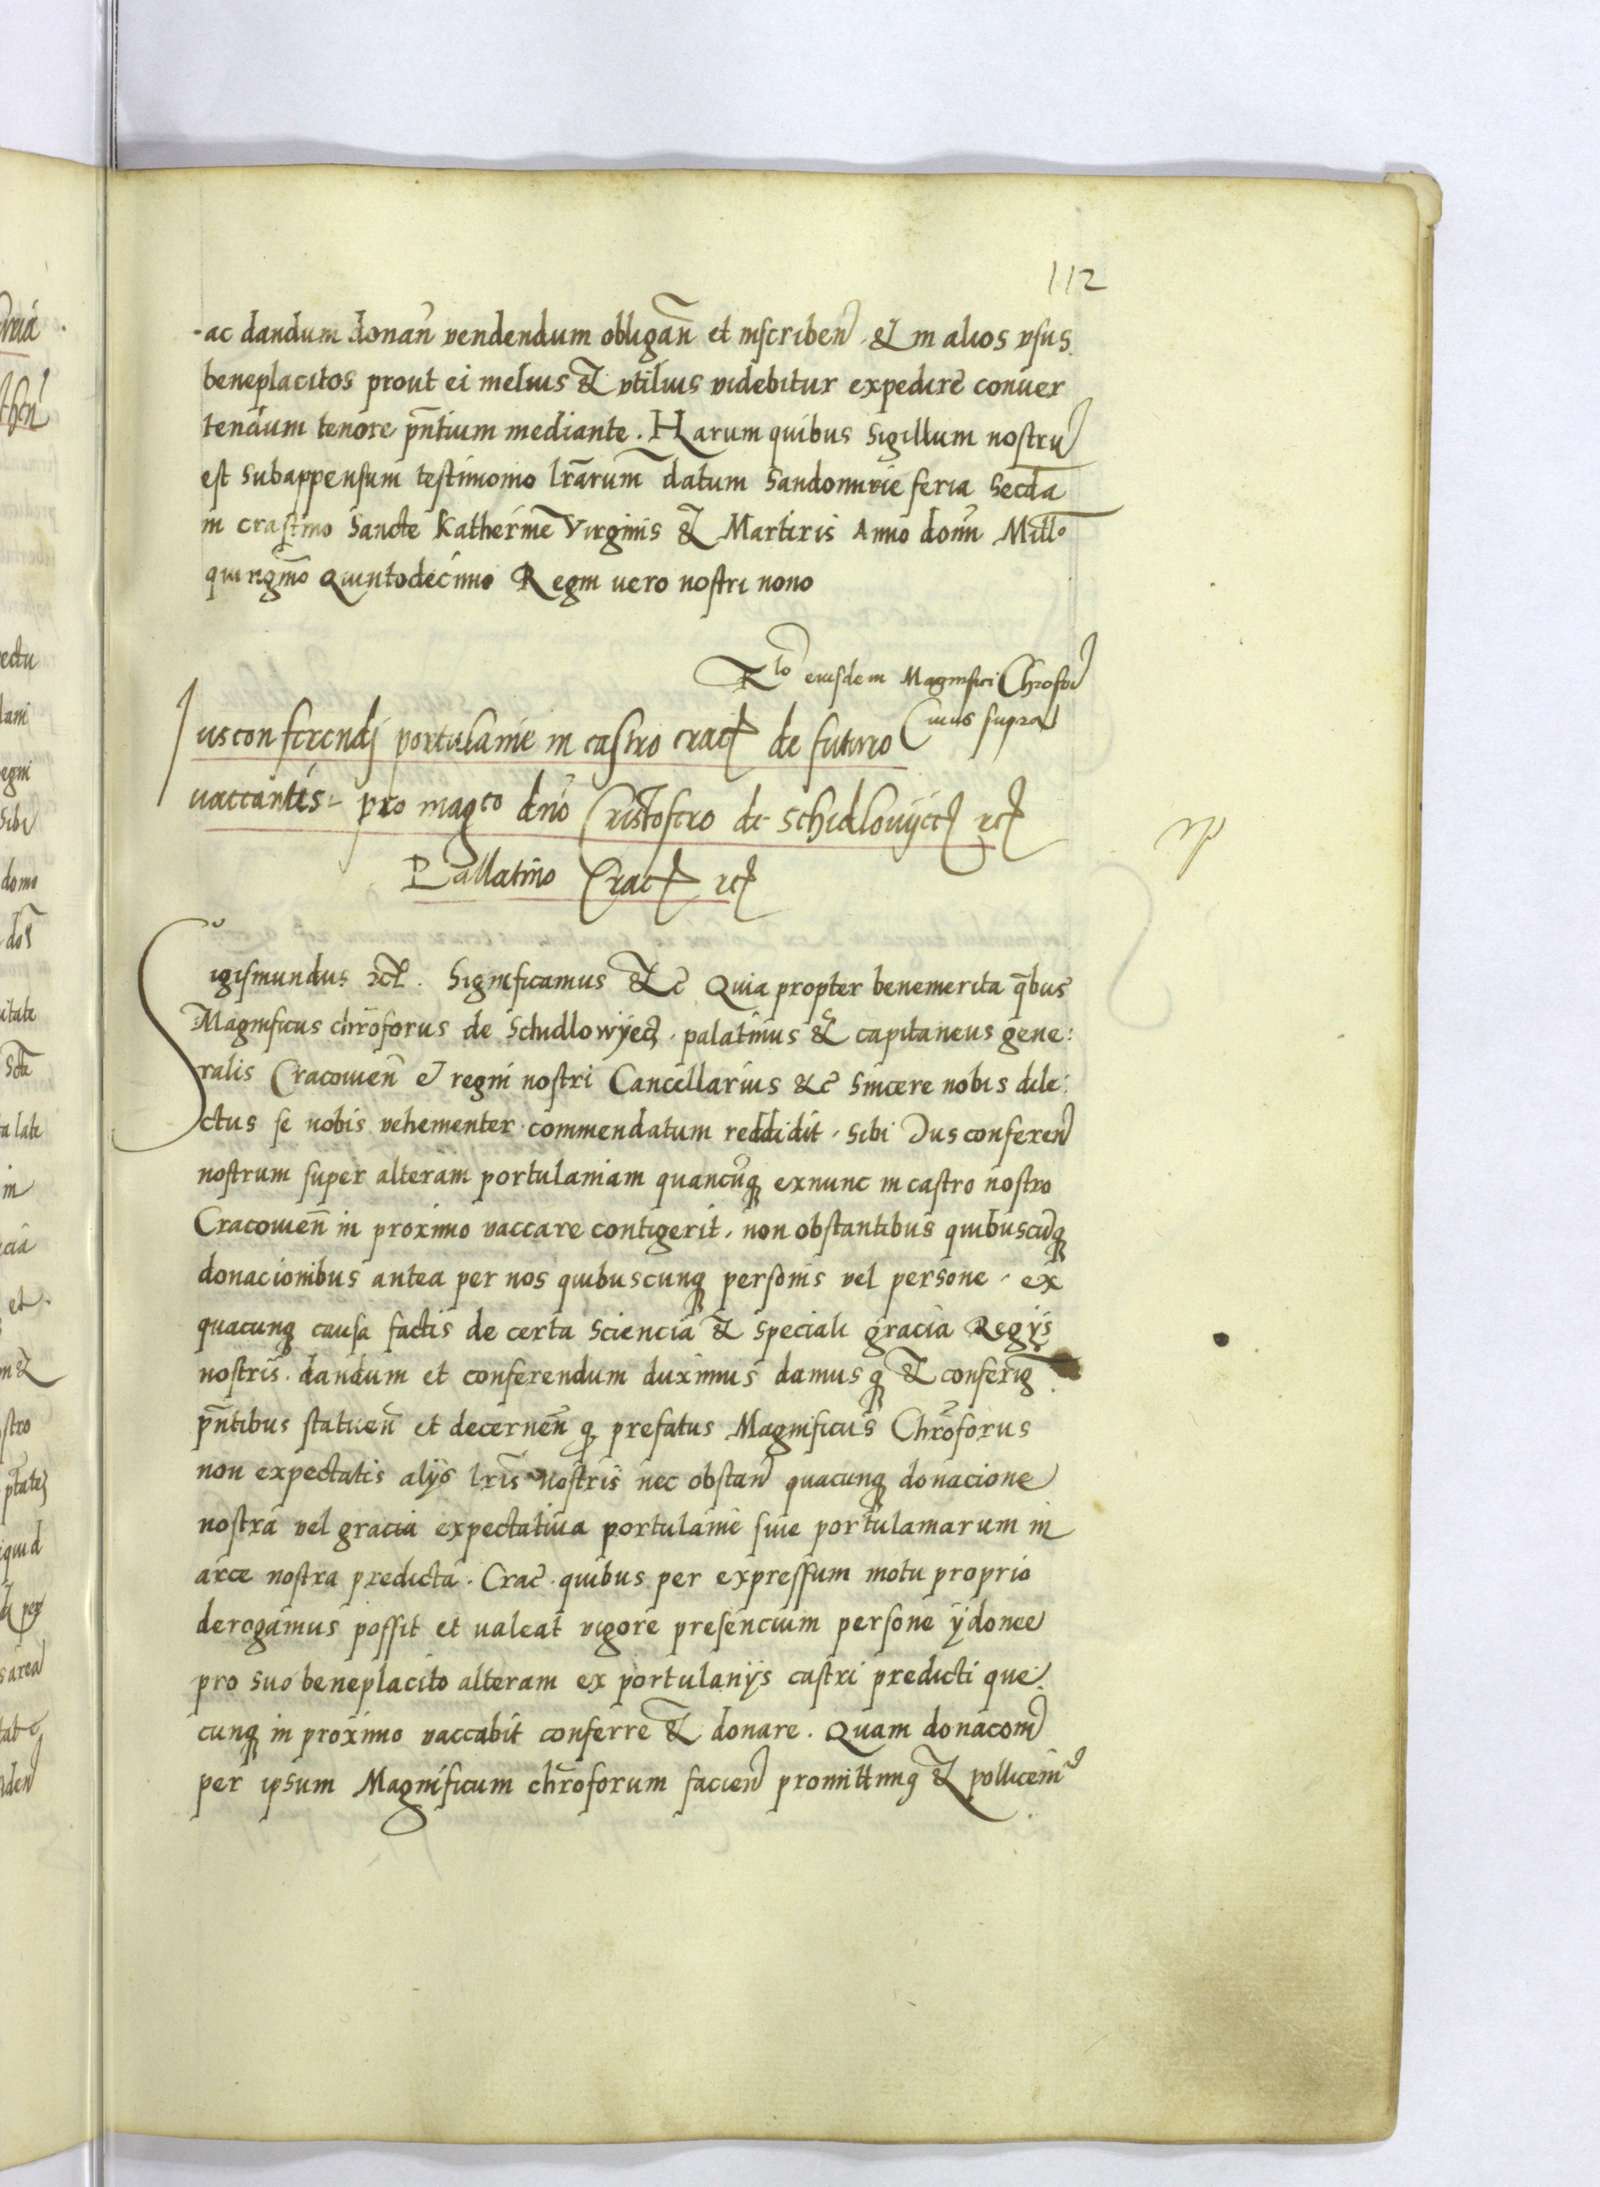 112
ac dandum donan̄ vendendum obligan̄ et inscriben̄ & in alios vsus
beneplacitos prout ei melius & vtilius videbitur expedire conver
tendum tenore pn̄tium mediante. Harum quibus sigillum nostru̅
est subappensum testimonio lr̄arum datum Sandomirie feria secda
in crastino Sancte Katherine Virginis & Martiris Anno domi Millo
quingmo Quintodecimo Regni vero nostri nono
Rlo eiusdem Magnifici Chrofori
Cuius supra
Jus conferendj portulanie in castro crac̄ de futuro
vaccantis pro magco dno Cristofero de Schidlovijecz etc̄
Pallatino Crac̄ etc̄
Sigismundus etc̄. Significamus &c̄ Quia propter benemerita q̄bus
Magnificus chr̄oforus de Schidlowÿecz palatinus & capitaneus gene:
ralis Cracovien̄ et regni nostri Cancellarius &c̄ Sincere nobis dile:
ctus se nobis vehementer commendatum reddidit. Sibi Jus conferen̄
nostrum super alteram portulaniam quancūq exnunc in castro nostro
Cracovien̄ in proximo vaccare contigerit, non obstantibus quibuscūq
donacionibus antea per nos quibuscunq personis vel persone ex
quacunq causa factis de certa sciencia & speciali gracia Regÿs
nostris dandum et conferendum duximus damusq & conferim9
pn̄tibus statuen̄ et decernen̄ q prefatus Magnificus Chr̄oforus
non expectatis alÿs lr̄is nostris nec obstan̄ quacunq donacione
nostra vel gracia expectativa portulanie sive portulaniarum in
arce nostra predicta Crac̄ quibus per expressum motu proprio
derogamus possit et valeat vigore presencium persone ÿdonee
pro suo beneplacito alteram ex portulanÿs castri predicti que:
cunq in proximo vaccabit conferre & donare. Quam donacōm
per ipsum Magnificum chr̄oforum facien̄ promittim9 & pollicem̄